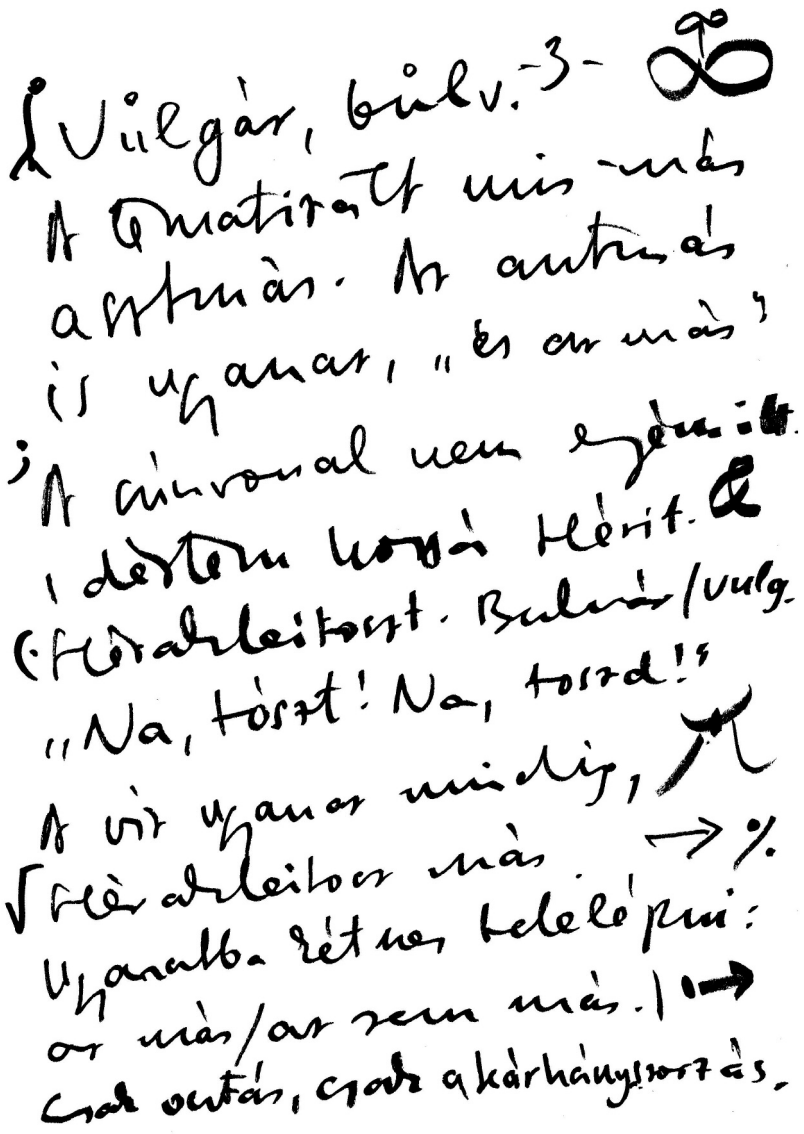 Vulgár, bulv. -3-
A tematizált más-más
asztmás. Az autmás
is ugyanaz, „és az más”
A színvonal nem egyéni:
hozzá Hérit. &
(Hérakleitoszt. Bulvár/vulg.
„Na, tószt! Na, toszd!”
A víz ugyanaz mindig,
√ Hérakleitosz más → %
Ugyanabba kétszer belelépni:
az más/az sem más. | →
csak osztás, csak akárhányszorzás.